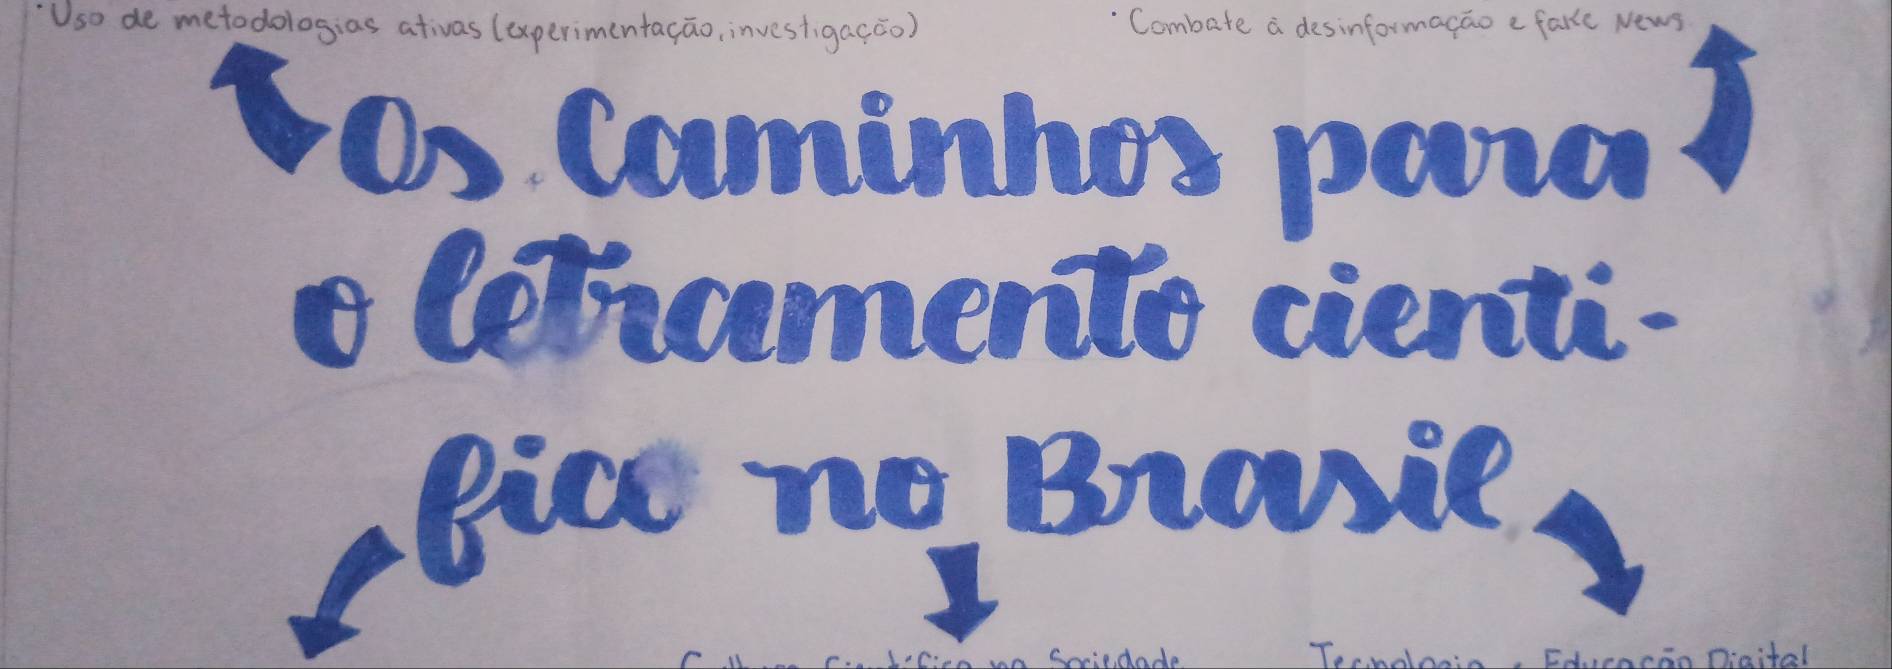 · Uso de metodologias ativas (experimentação, investigação)
· Combate à desinformação e fake News
Os Caminhos para
o letramento cienti-
fico no Brasil
Cultura Científica na Sociedade
Tecnologia e Educação Digital